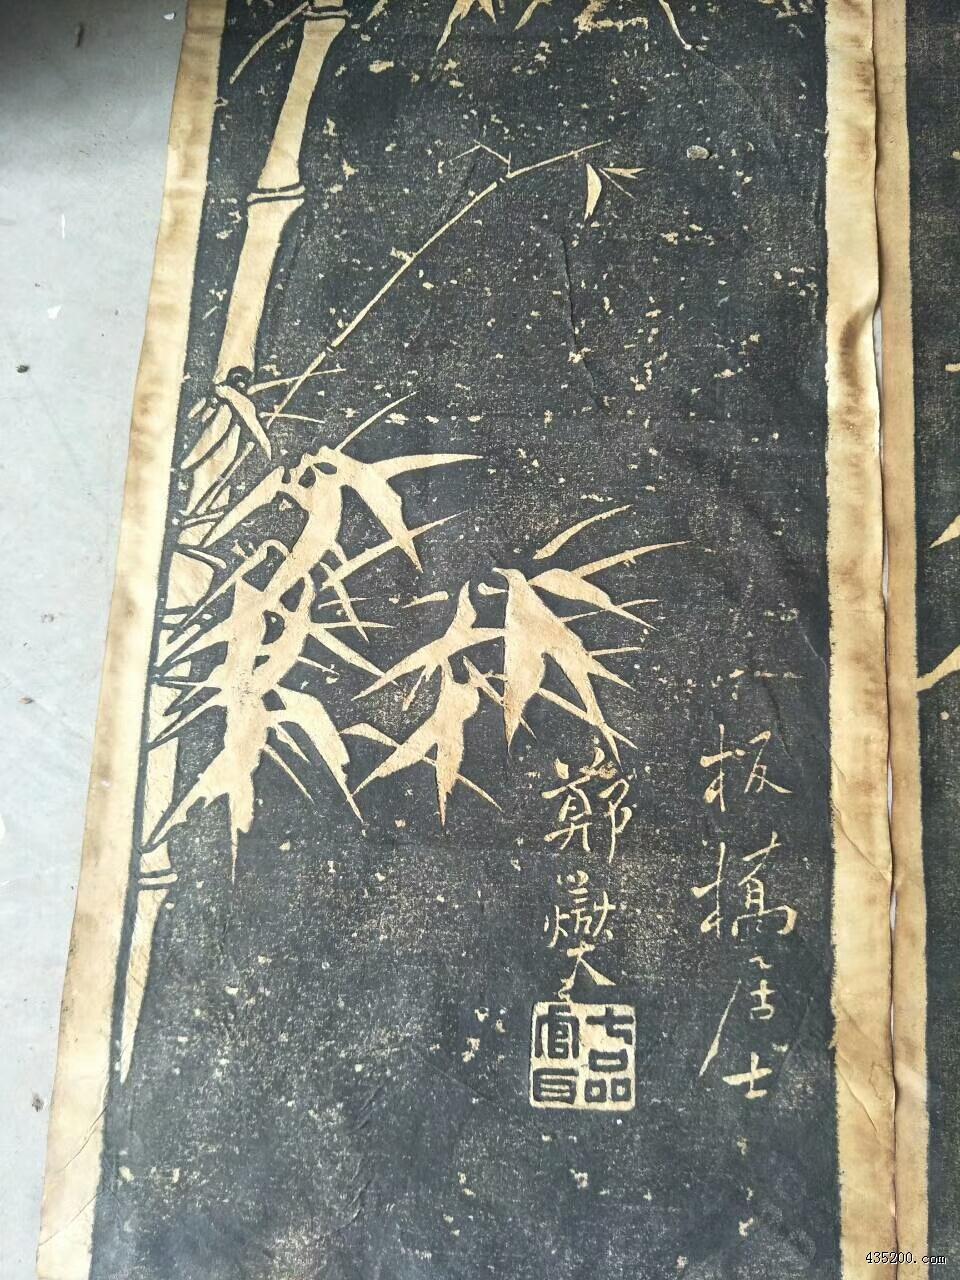 板橋居士
鄭燮
七品
官耳
435200.com